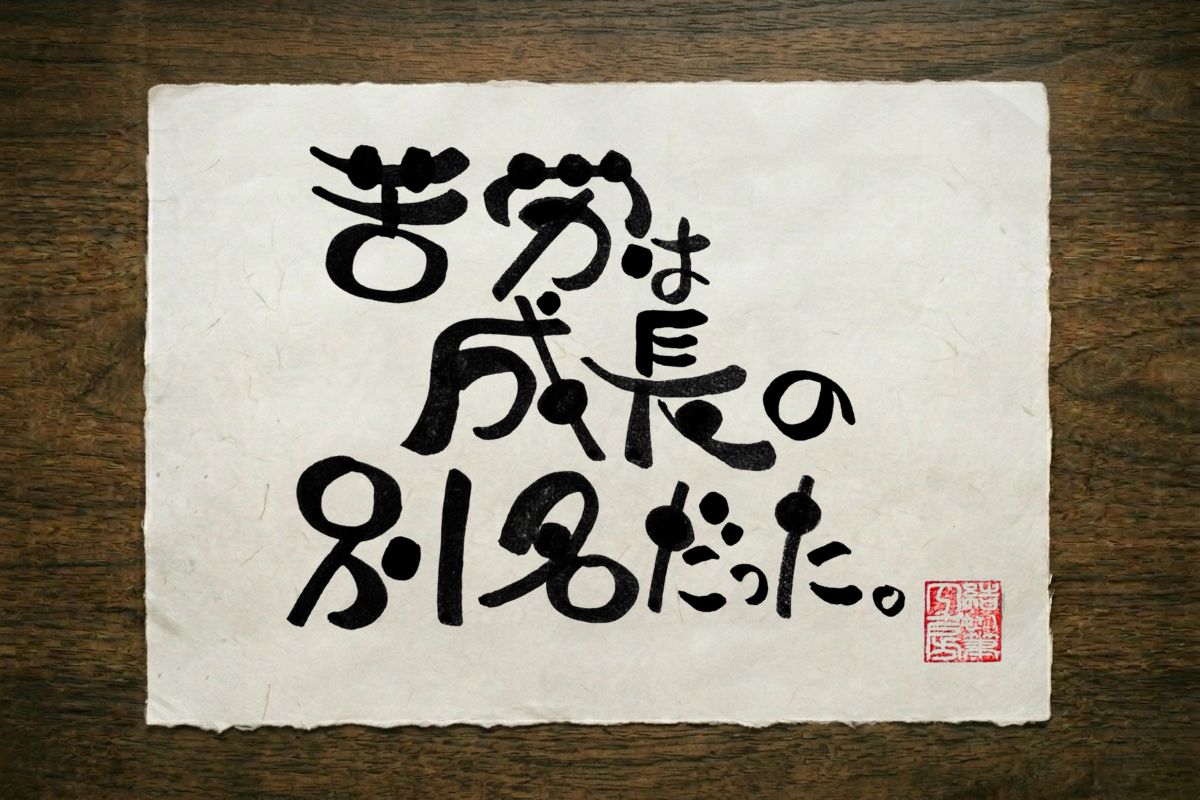 苦労は
成長の
別名だった。